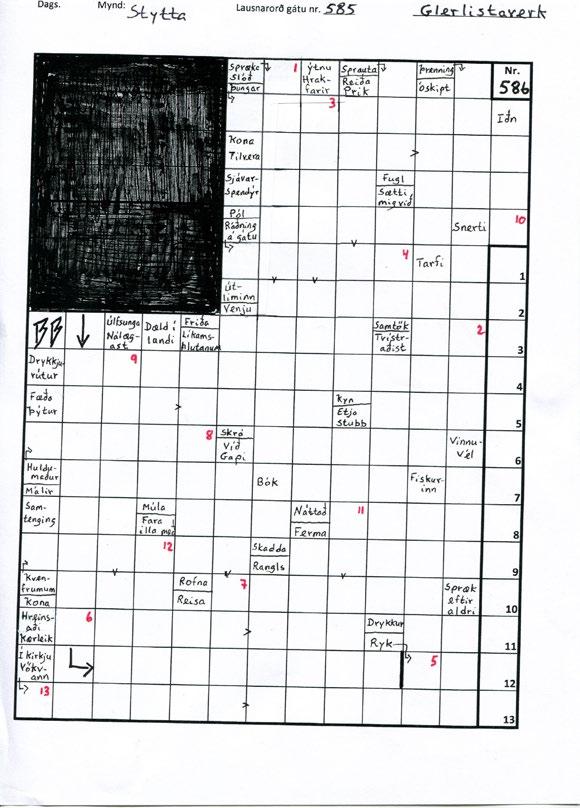 Dags. Mynd: Stytta Lausnarorð gátu nr. 585 Glerlistaverk
Spræka
Slóð
Þungar
1
Ýtnu
Hrak-
farir
Sprauta
Reiða
Prik
Þrenning
Óskipt
Nr.
586
3
Iðn
Kona
Tilvera
Sjávar-
Spendýr
Fugl
Sætti,
mig við
Pól
Ráðning
á gátu
Snerti
10
4
Tarfi
1
Út-
liminn
Venju
2
BB
Úlfsunga
Nálæg-
ast
Dæld í
landi
Fríða
Líkams-
hlutanum
Samtök
Tvístr-
aðist
2
3
Drykkju-
rútur
9
4
Fæða
Þýtur
Kyn
Etja
Stubb
5
8
Skrá
Við
Gapi
Vinnu-
Vél
6
Huldu-
meður
Málir
Bók
Fiskur-
inn
7
Sam-
tenging
Múla
Fara
illa með
Náttað
Ferma
11
8
12
Skadda
Rangls
9
Kven-
frumum
Kona
Rofna
Reisa
7
Spræk
eftir
aldri
10
Hreins-
aði
Kærleik
6
Drykkur
Ryk
11
Í kirkju
Vökv-
ann
5
12
13
13